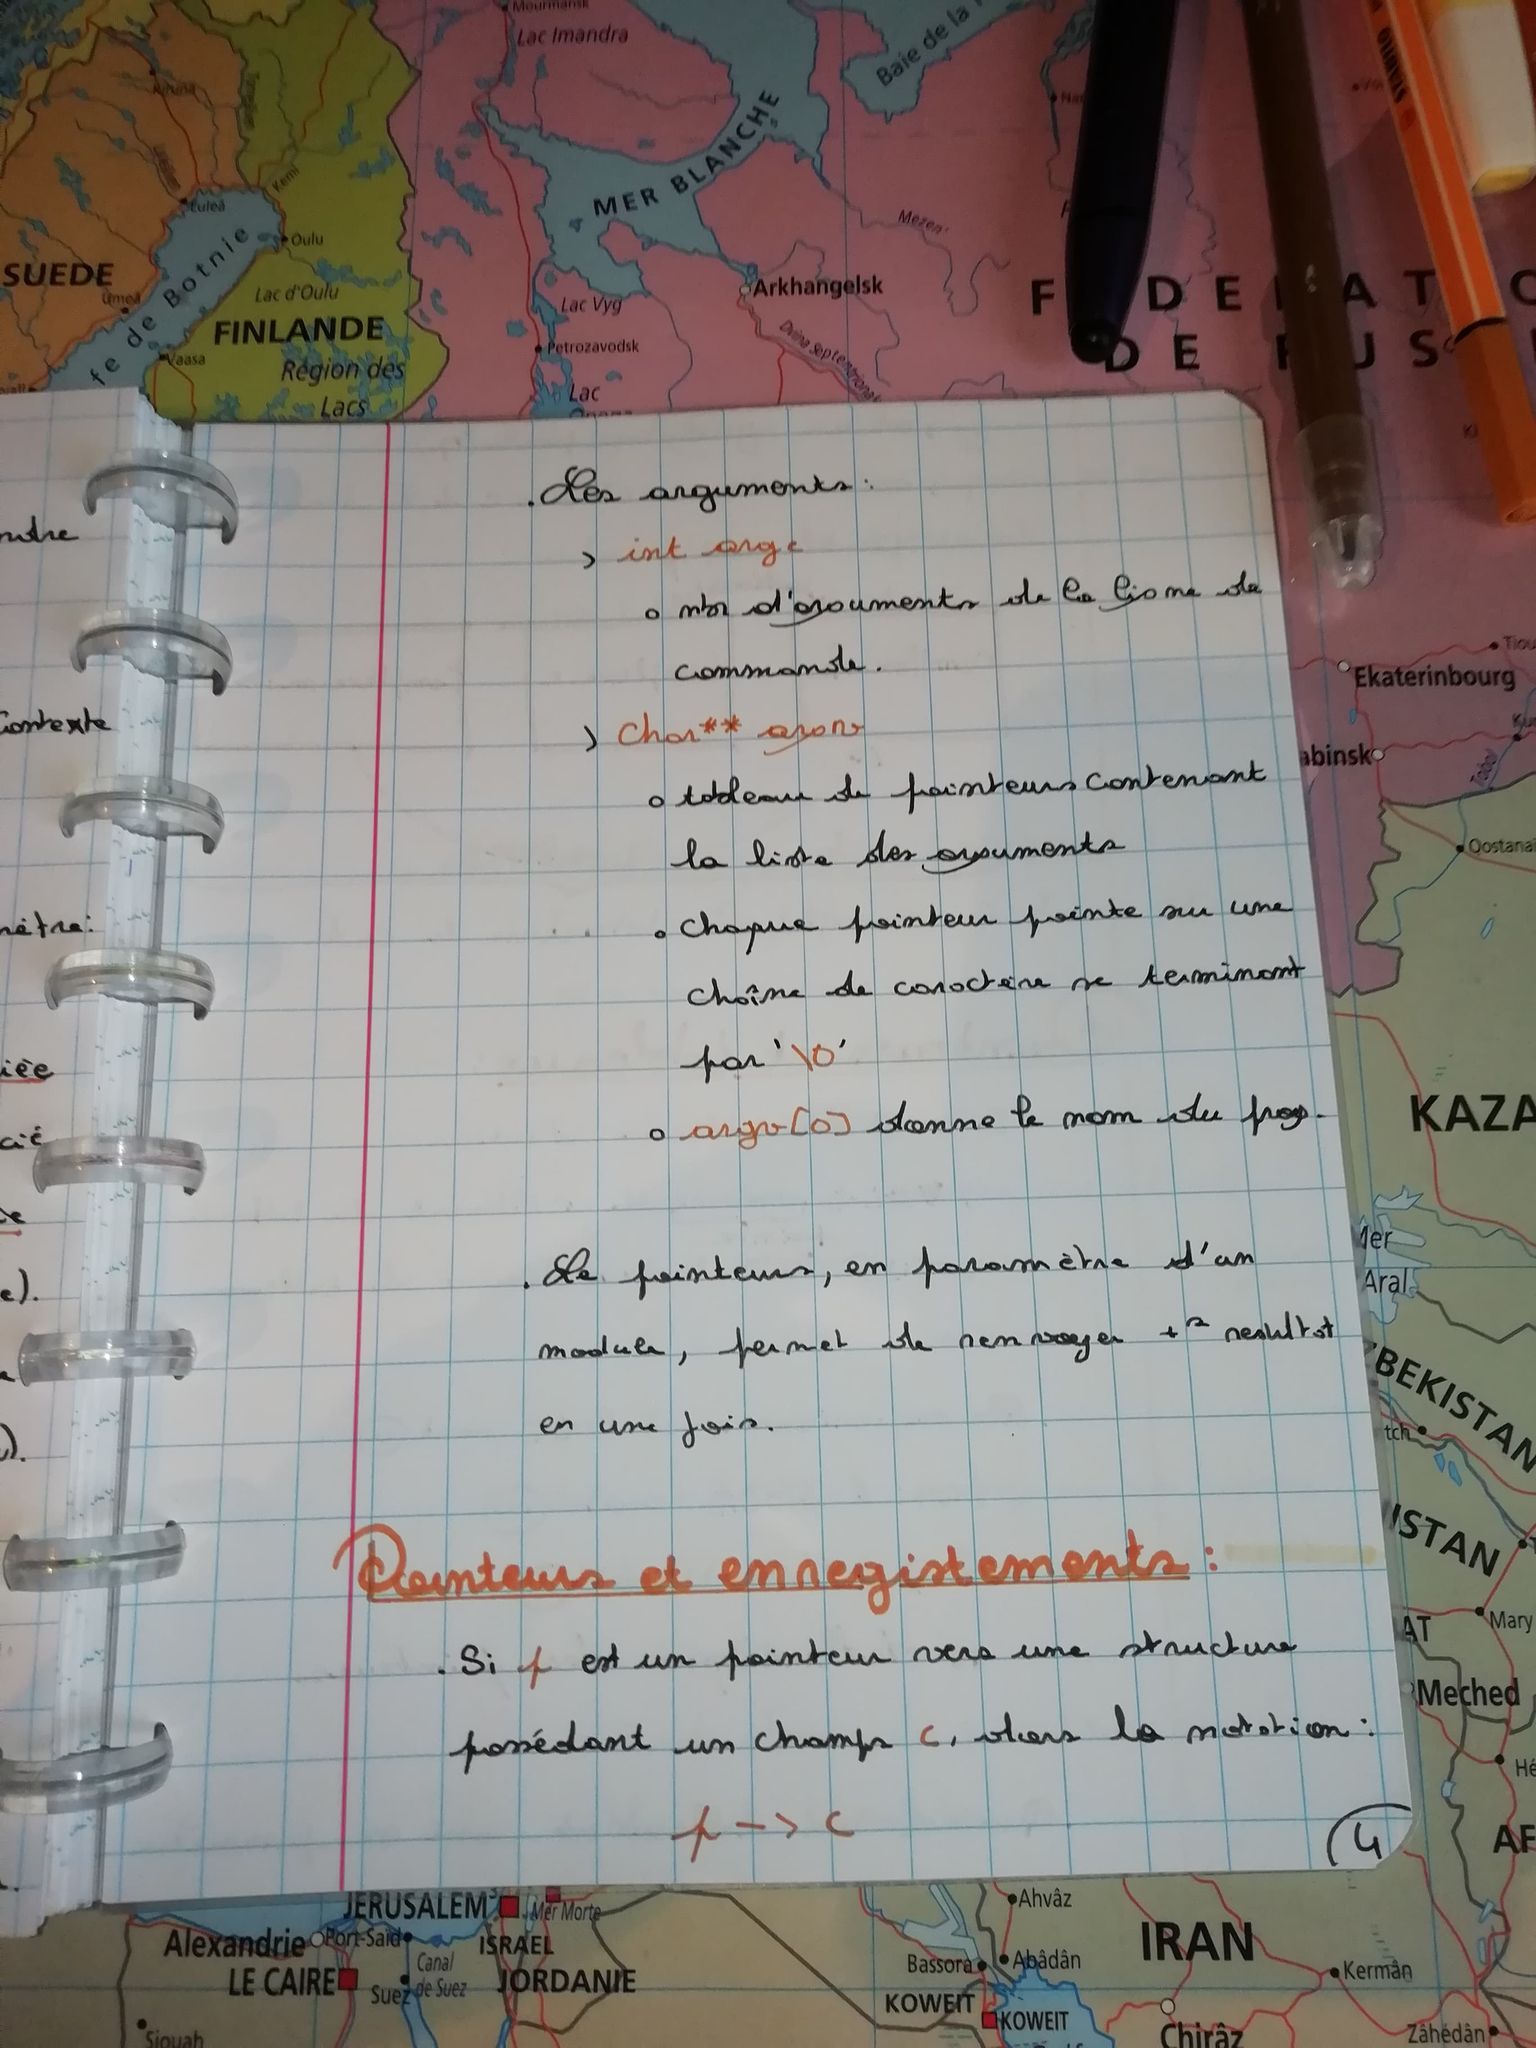 Mourmansk
Lac Imandra
Baie de la
Kiruna
MER BLANCHE
Mezen'
Kemi
Luleå
Oulu
SUEDE
Umeå
fe de Botnie
Lac d'Oulu
FINLANDE
Vaasa
Région des
Lacs
Arkhangelsk
Lac Vyg
Dvina septentrionale
Petrozavodsk
Lac
STABILO
F DE AT O
DE US
. Les arguments:
> int argc
o nbr d'arguments de la ligne de
commande.
> Char** argv
o tableau de pointeurs contenant
la liste des arguments
o Chaque pointeur pointe sur une
chaîne de caractère se terminant
par '\0'
o argv[0] donne le nom du prog.
. Le pointeurs, en paramètre d'un
module, permet de renvoyer +rs resultat
en une fois.
Pointeurs et enregistements :
. Si p est un pointeur vers une structure
possédant un champs c, alors la notation :
p -> c
4
Contexte
mètre:
iée
cié
e).
Ekaterinbourg
abinsk
Tobol
Oostanaï
KAZA
Mer
Aral
ZBEKISTAN
tch
ISTAN
Mary
AT
Meched
Hé
AF
JERUSALEM
Mer Morte
Alexandrie
Port-Saïd
ISRAEL
Canal
de Suez
LE CAIRE
Suez
JORDANIE
Siouah
Ahvâz
Abâdân
Bassora
IRAN
Kermân
KOWEIT
KOWEIT
Chirâz
Zâhédân